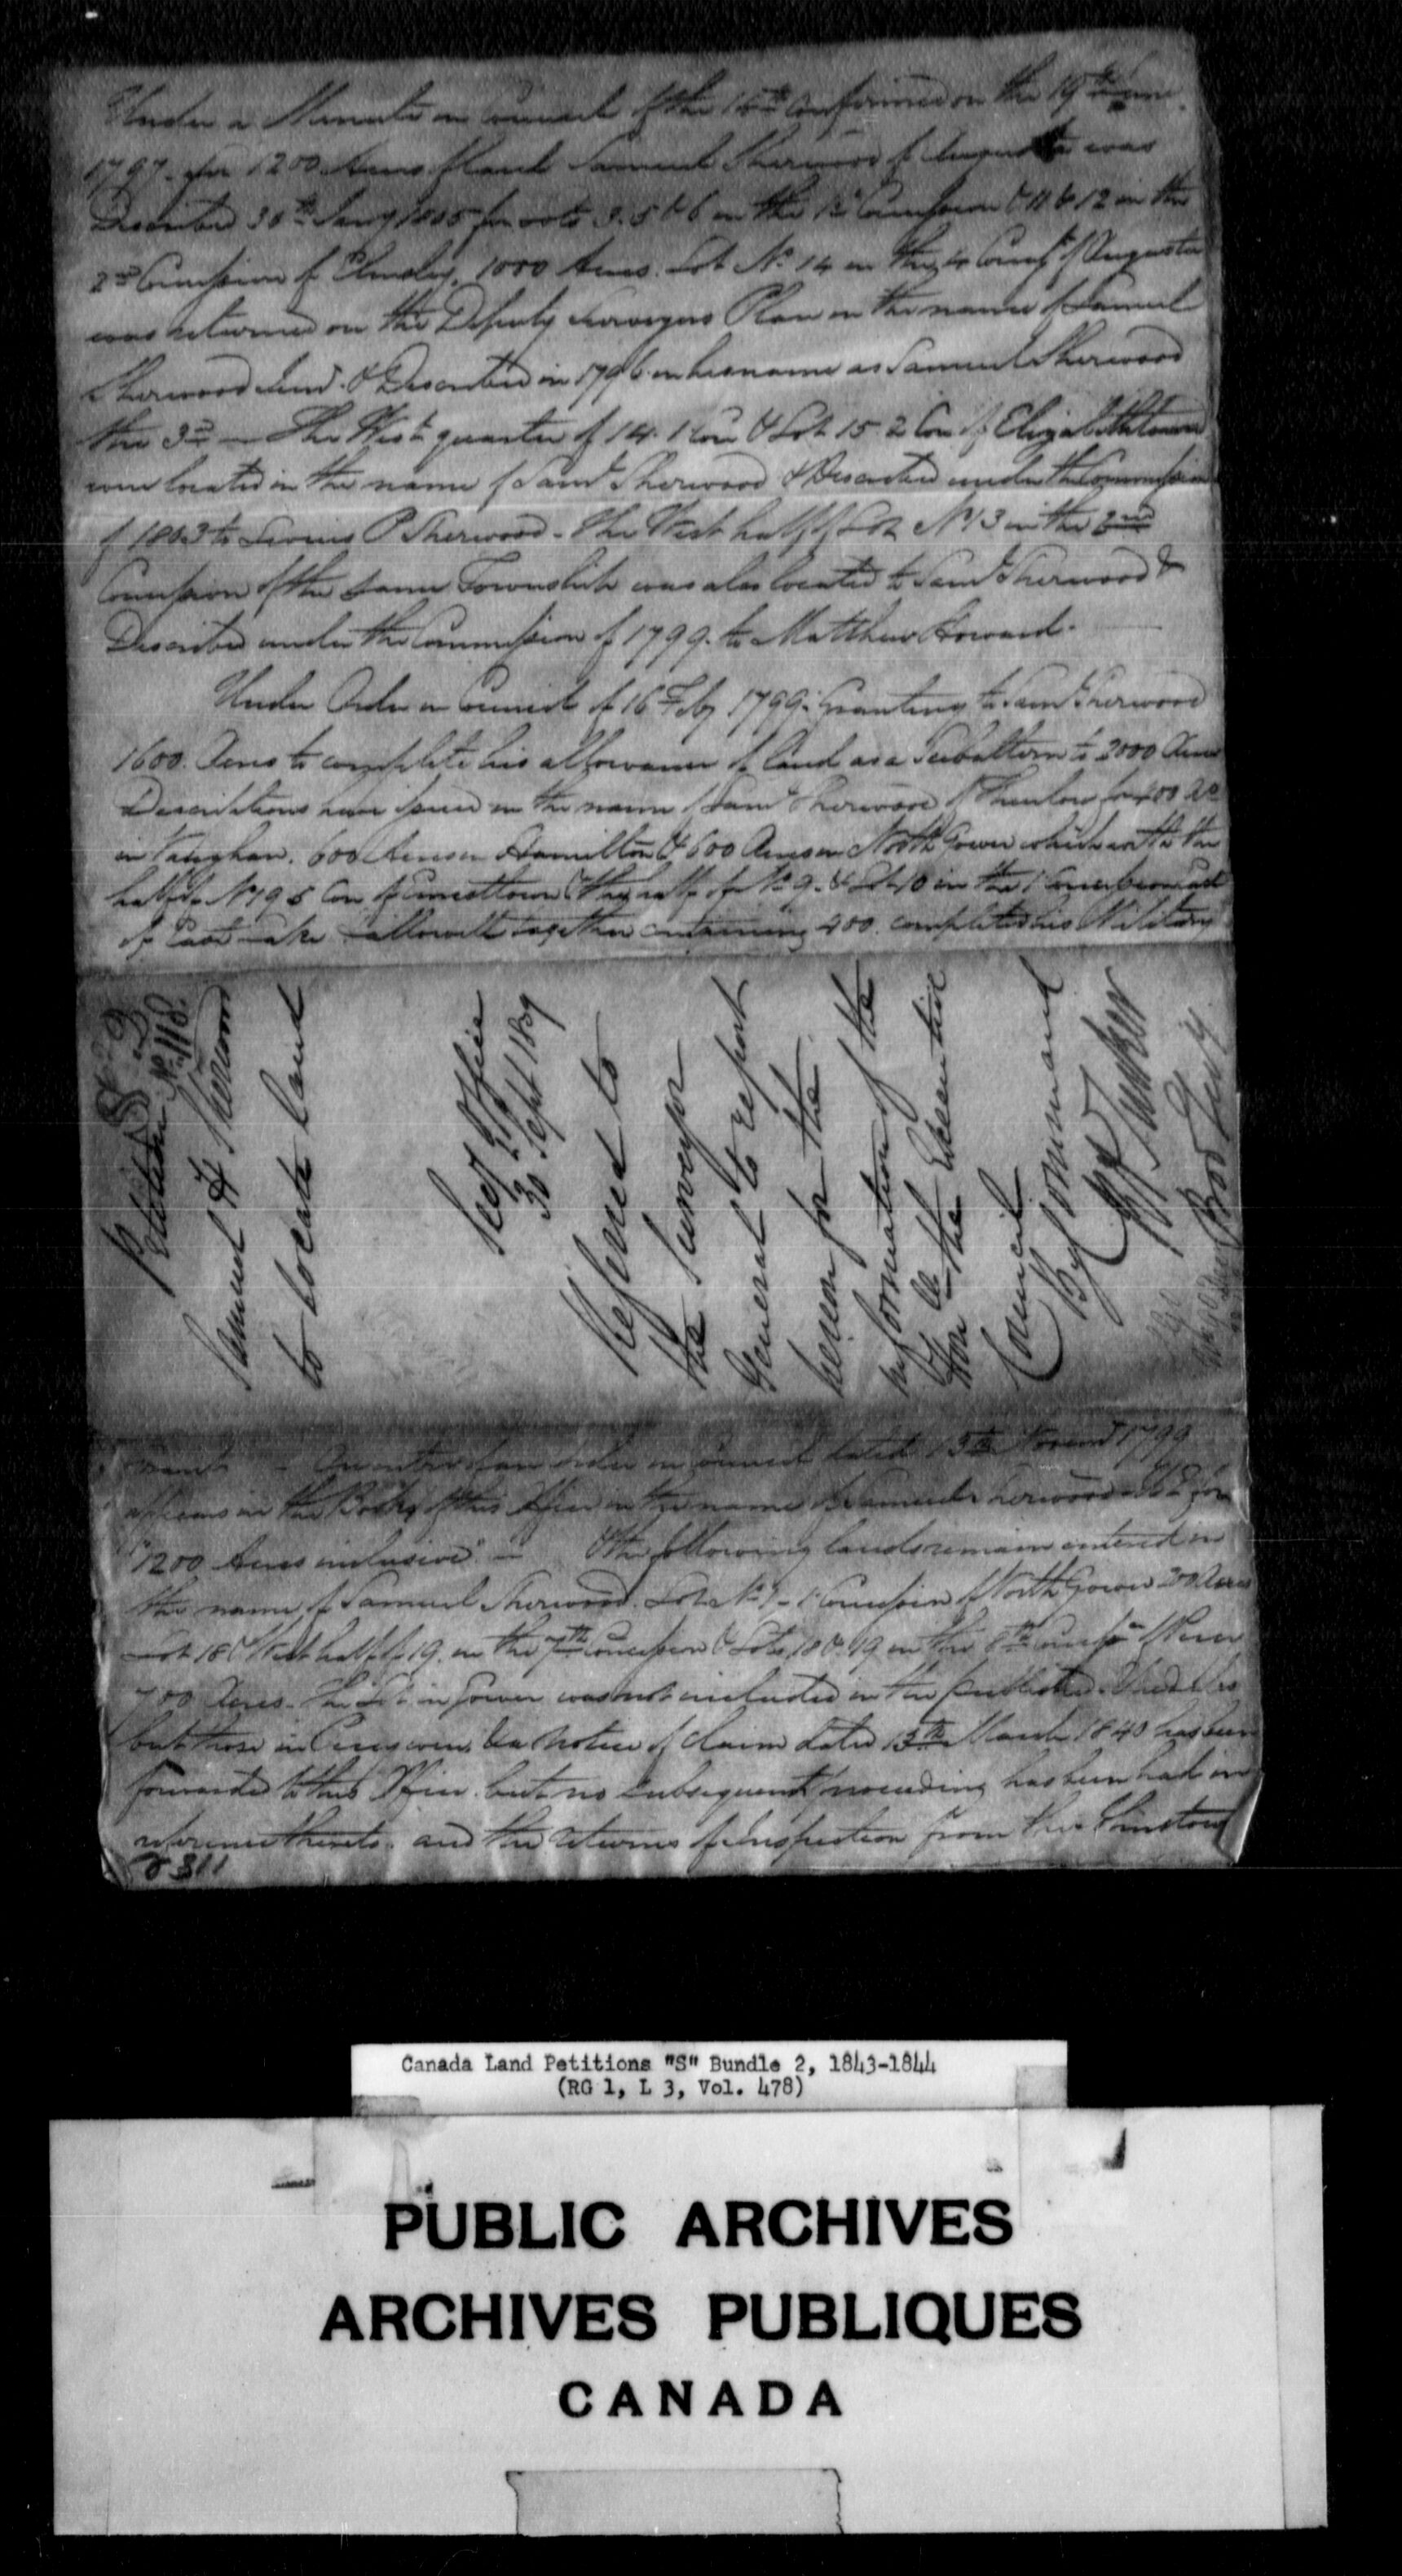 Under a Minute in Council of the 15th confirmed on the 19th June
1797 for 1200 Acres of land Samuel Sherwood of Augusta was
Described 30th Jany 1805 for Lots 3. 5 & 6 in the 1st Concession & 11 & 12 in the
2nd Concession of Elmsley, 1000 Acres. Lot No 14 in the Concn of Augusta
was returned on the Deputy Surveyors Plan in the name of Samuel
Sherwood & Described in 1796 in his name as Samuel Sherwood
the 3rd — The West quarter of 14. 1 Con & Lot 15. 2 Con of Elizabethtown
were located in the name of Saml Sherwood & Described under the Commission
of 1803 to Livius P Sherwood - The West half of Lot No 13 in the 2nd
Concession of the same Township was also located to Saml Sherwood &
Described under the Commission of 1799. to Matthew Howard.
Under Order in Council of 16 Feby 1799. Granting to Saml Sherwood
1600. Acres to complete his allowance of land as a Subaltern to 2000 Acres
Descriptions have issued in the name of Saml Sherwood of Thurlow for 400 Ac
in Vaughan. 600 Acres in Hamilton & 600 Acres in North Gower which with the
half of No 19 5 Con of Ernestown & the half of No 9. & Lot 10 in the 1 Concession East
of together containing 400. completes his Military
Petition No 118.
Samuel Sherwood
to locate land
Secy Office
30 Sept 1839
Referred to
the Surveyor
General to report
hereon for the
information of the
Hon the Executive
Council
By Command
R A Tucker
- An entry of an order in Council dated 15th Novemr 1799
appears in the Books of this Office in the name of Samuel Sherwood for
"1200 Acres inclusive" — & the following lands remain entered in
the name of Samuel Sherwood. Lot No 1 - 1 Concession of North Gower 200 Acres
Lot 18 & West half of 19. in the 7th Concession & Lots 18 & 19 in the 8th
700 Acres. The Lot in Gower was not included in the published Schedules
but those in were, & a notice of claim dated 13th March 1840 has been
forwarded to this Office. but no subsequent proceeding has been had in
reference thereto. and the returns of Inspection from the
Canada Land Petitions "S" Bundle 2, 1843-1844
(RG 1, L 3, Vol. 478)
PUBLIC ARCHIVES
ARCHIVES PUBLIQUES
CANADA